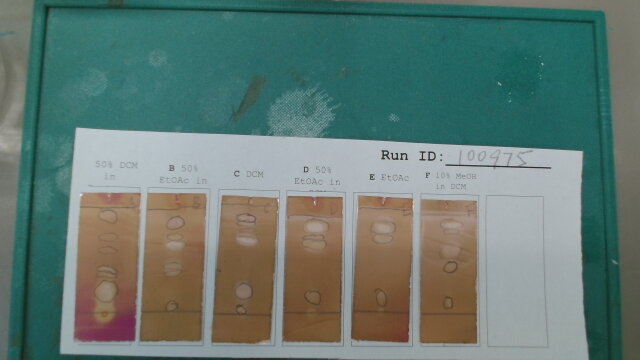 Run ID: 100975
50% DCM
in
B 50%
EtOAc in
C DCM
D 50%
EtOAc in
E EtOAc
F 10% MeOH
in DCM